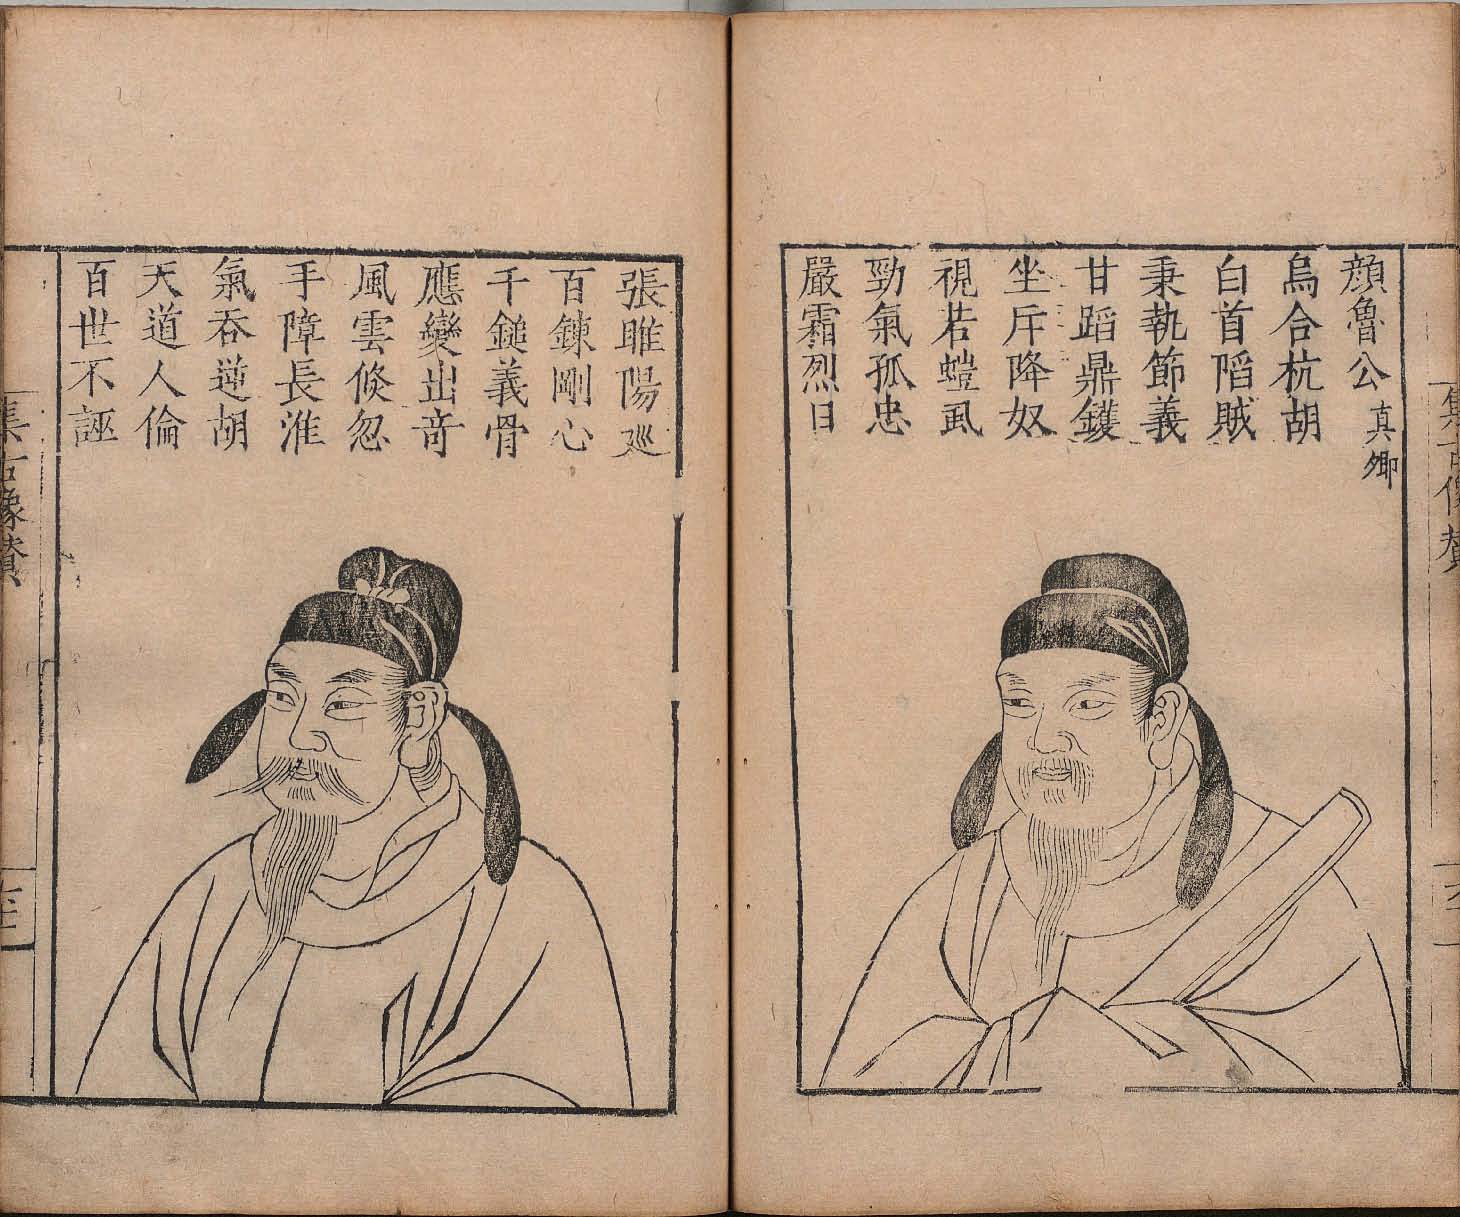 集古像贊
顔魯公 真卿
烏合杭胡
白首䧟賊
秉執節義
甘蹈鼎鑊
坐斥降奴
視若螘虱
勁氣孤忠
嚴霜烈日
張睢陽 廵
百鍊剛心
千鎚義骨
應變出竒
風雲倐忽
手障長淮
氣吞逆胡
天道人倫
百世不誣
集古像贊